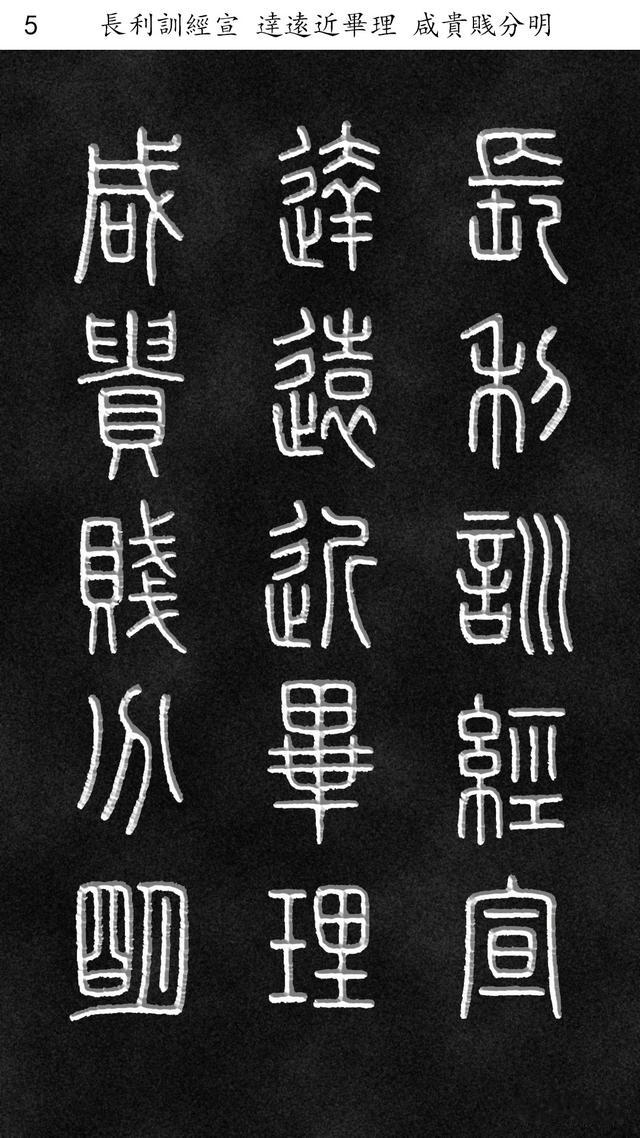 5 長利訓經宣 達遠近畢理 咸貴賤分明
長利訓經宣
達遠近畢理
咸貴賤分明